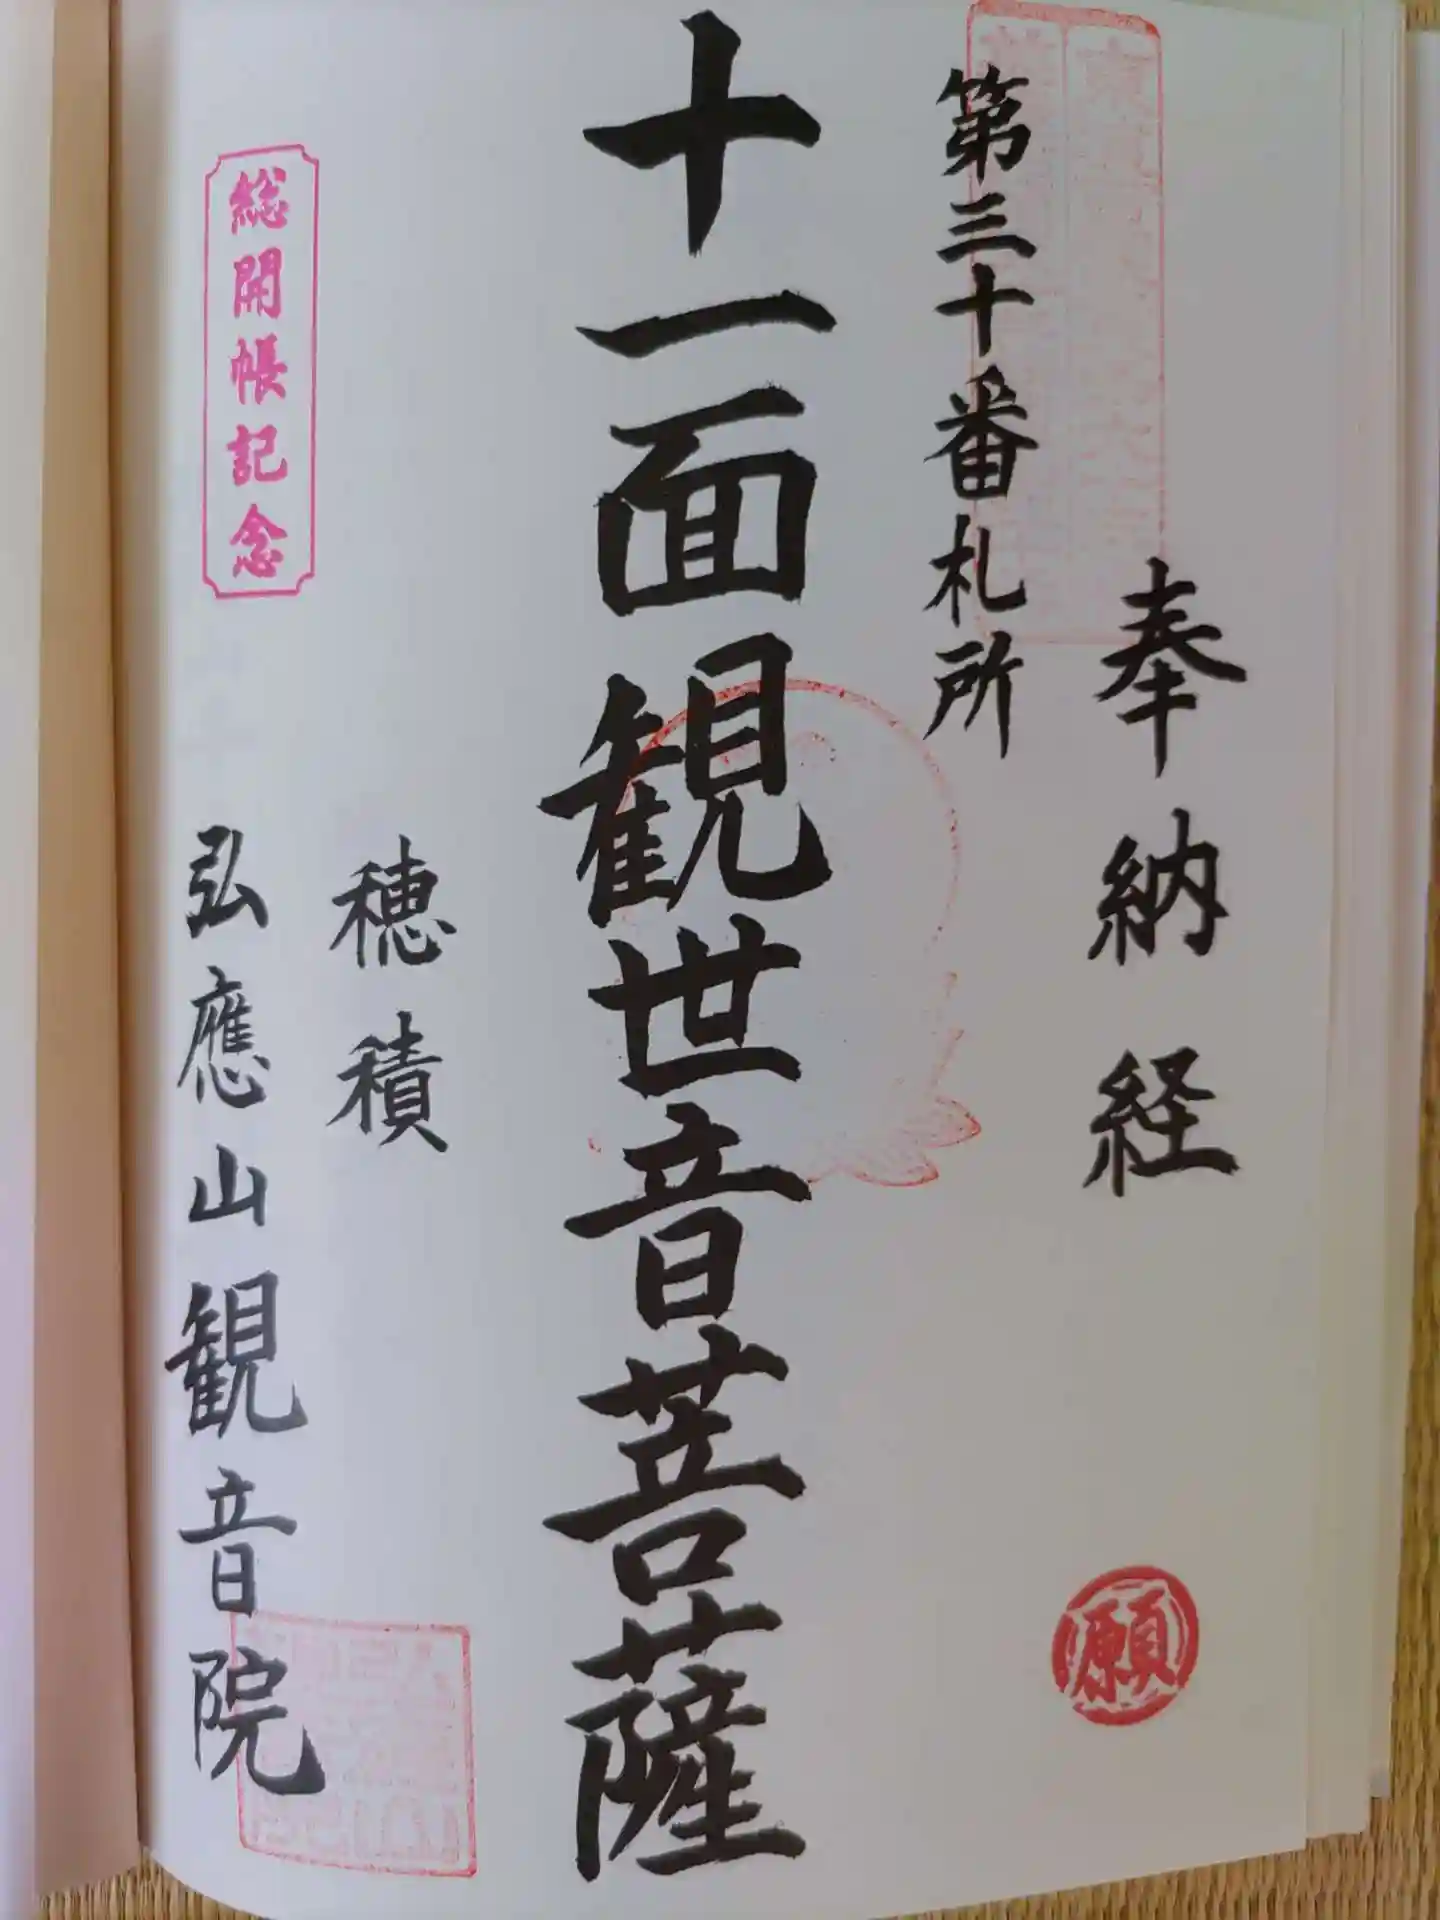 奉納経
第三十番札所
十一面観世音菩薩
穂積
弘應山観音院
総開帳記念
願